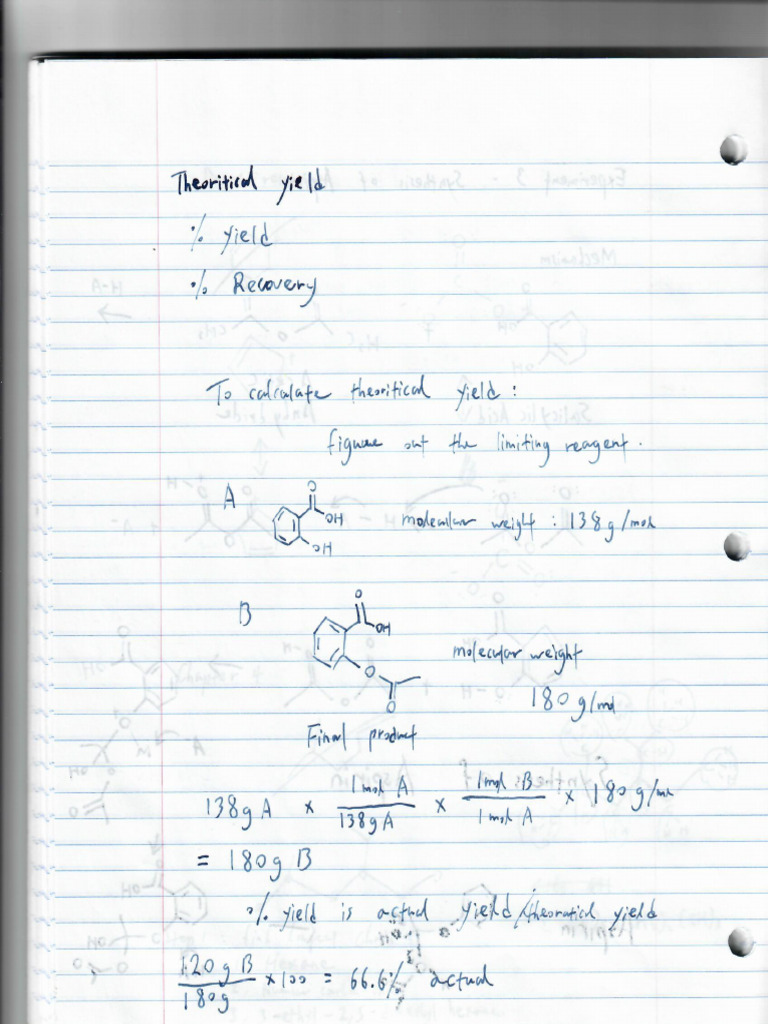 Theoritical yield
% yield
% Recovery
To calculate theoritical yield :
figure out the limiting reagent.
A
O
OH
OH
molecular weight : 138 g/mol
B
O
OH
O
O
molecular weight
180 g/mol
Final product
138g A x 1 mol A / 138g A x 1 mol B / 1 mol A x 180 g/mol
= 180g B
% yield is actual yield/theoratical yield
120 g B / 180g x 100 = 66.6% actual